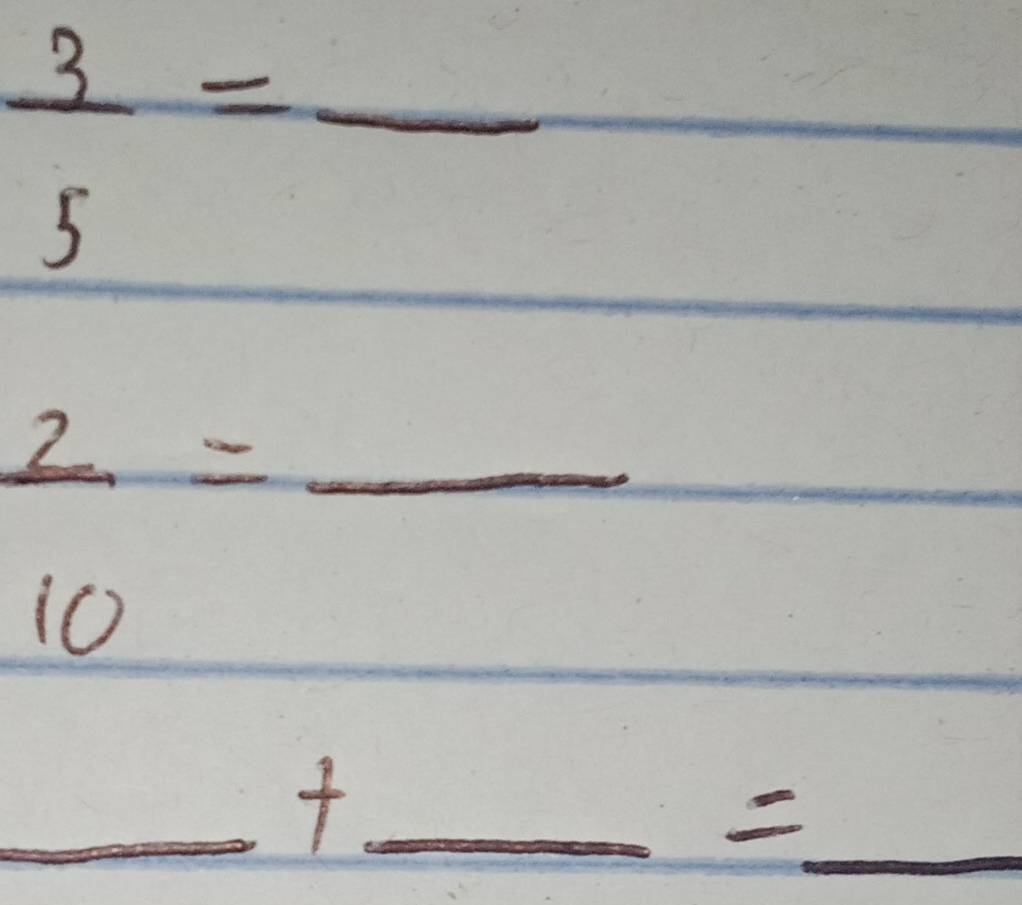 3/5 = ___
2/10 = ___
___ + ___ = ___